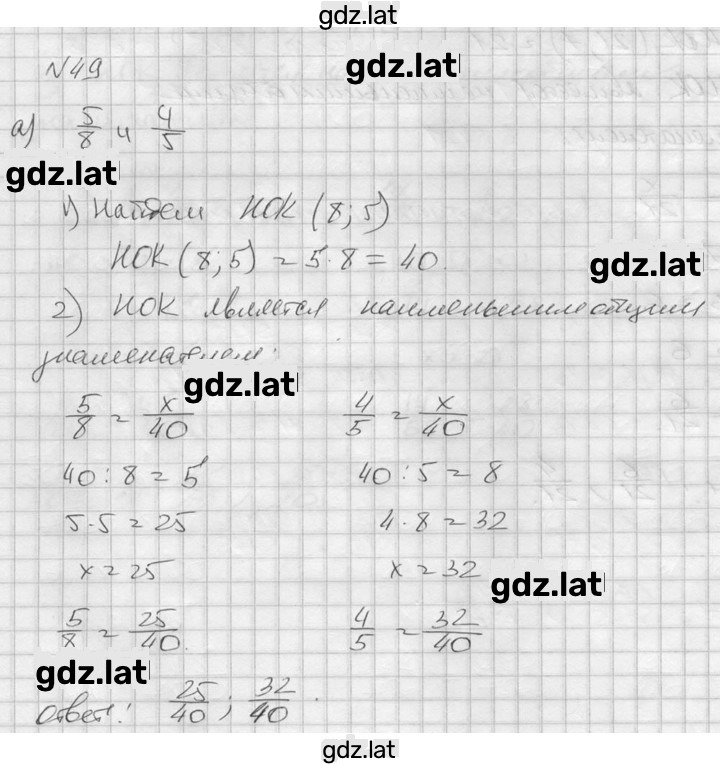 gdz.lat
N49 gdz.lat
а) 5/8 и 4/5
gdz.lat
1) Найдем НОК (8; 5)
НОК (8; 5) = 5·8 = 40.
gdz.lat
2) НОК является наименьшим общим
знаменателем:
gdz.lat
5/8 = x/40 4/5 = x/40
40 : 8 = 5 40 : 5 = 8
5·5 = 25 4·8 = 32
x = 25 x = 32
gdz.lat
5/8 = 25/40. 4/5 = 32/40
gdz.lat
Ответ: 25/40; 32/40.
gdz.lat